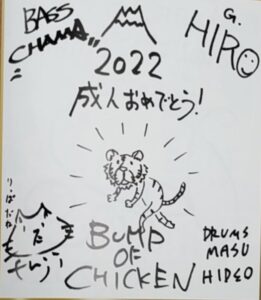 BASS
CHAMA
G.
HIRO
2022
成人おめでとう!
りっぱだね
BUMP
OF
CHICKEN
DRUMS
MASU
HIDEO